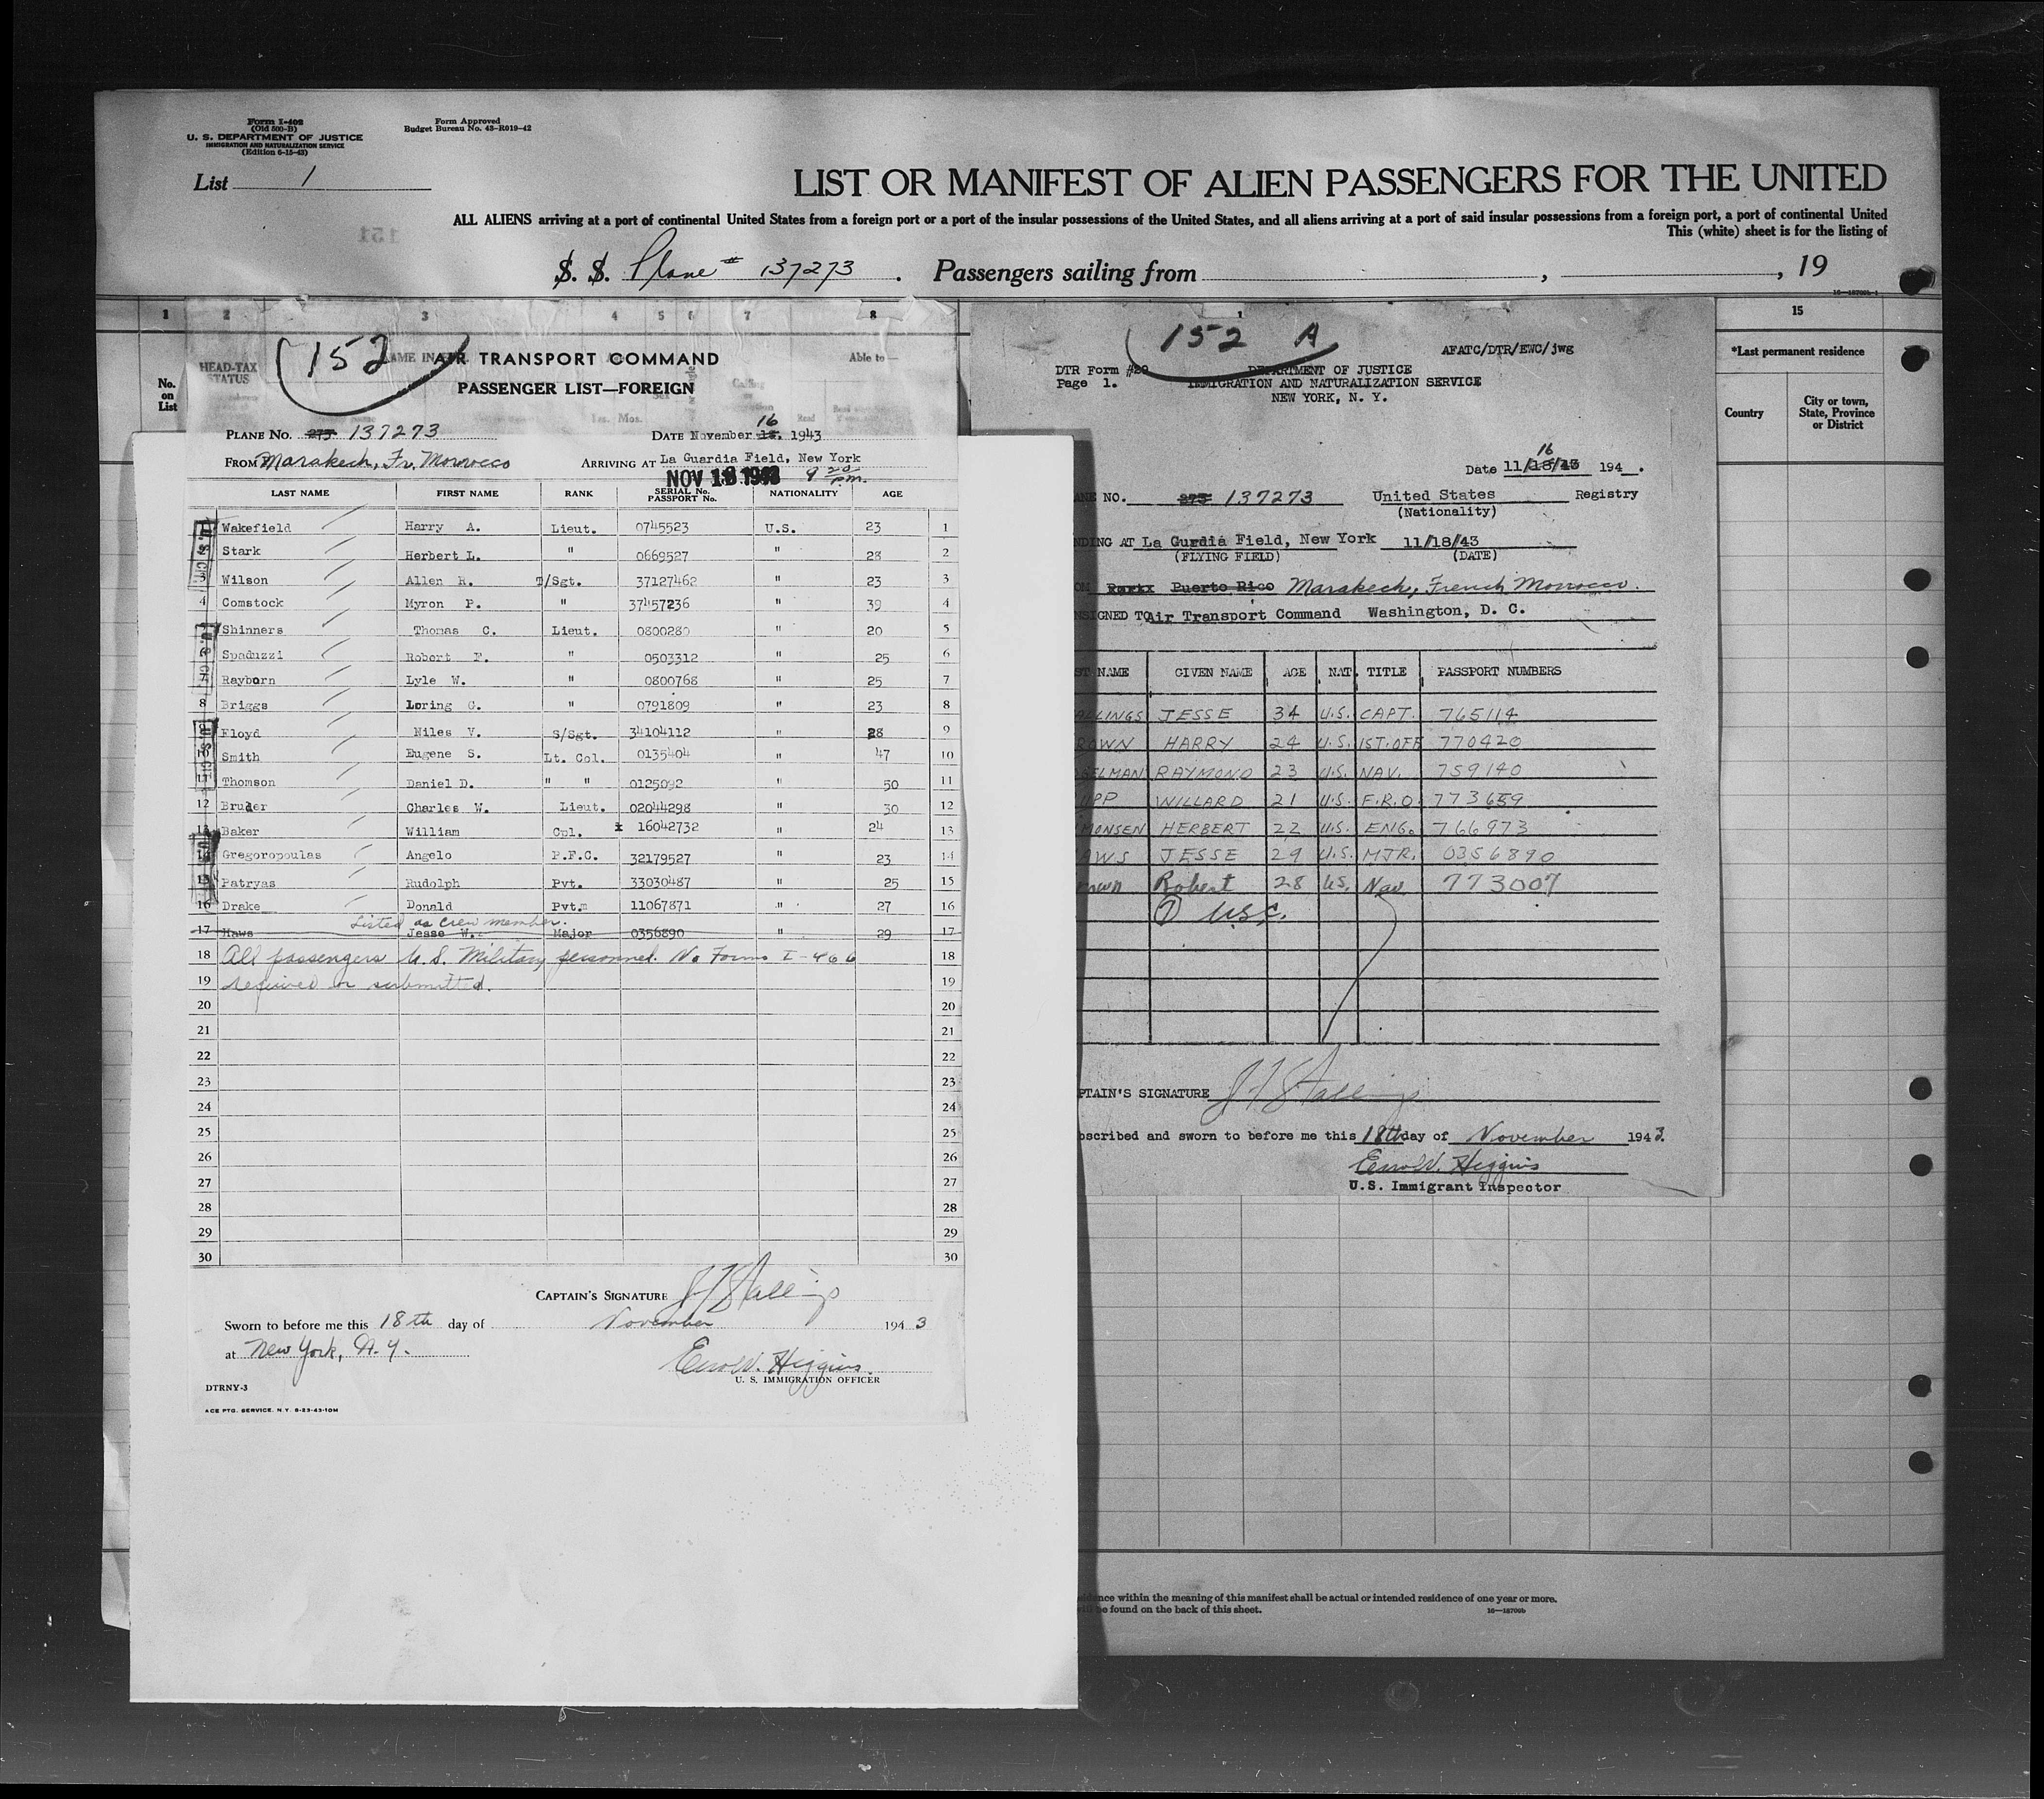 Form I-402
(Old 500-B)
U. S. DEPARTMENT OF JUSTICE
IMMIGRATION AND NATURALIZATION SERVICE
(Edition 6-15-43)
Form Approved
Budget Bureau No. 43-R019-42
List 1
LIST OR MANIFEST OF ALIEN PASSENGERS FOR THE UNITED
ALL ALIENS arriving at a port of continental United States from a foreign port or a port of the insular possessions of the United States, and all aliens arriving at a port of said insular possessions from a foreign port, a port of continental United
This (white) sheet is for the listing of
151
S. S. Plane # 137273 . Passengers sailing from , , 19
16—18700b-1
1 2 3 4 5 6 7 8
No. on List
HEAD-TAX STATUS
NAME IN
Able to—
152
AIR TRANSPORT COMMAND
PASSENGER LIST—FOREIGN
PLANE NO. 273 137273 DATE November 18. 16 1943
FROM Marakech, Fr. Morrocco ARRIVING AT La Guardia Field, New York
NOV 18 1943 9 20 P.m.
LAST NAME FIRST NAME RANK SERIAL No. PASSPORT No. NATIONALITY AGE
Wakefield Harry A. Lieut. 0745523 U.S. 23 1
Stark Herbert L. " 0669527 " 28 2
3 Wilson Allen R. T/Sgt. 37127462 " 23 3
4 Comstock Myron P. " 37457236 " 39 4
Shinners Thomas C. Lieut. 0800280 " 20 5
Spaduzzi Robert F. " 0503312 " 25 6
Rayborn Lyle W. " 0800768 " 25 7
8 Briggs Loring G. " 0791809 " 23 8
9 Floyd Niles V. S/Sgt. 34104112 " 28 9
10 Smith Eugene S. Lt. Col. 0135404 " 47 10
11 Thomson Daniel D. " " 0125092 " 50 11
12 Bruder Charles W. Lieut. 02044298 " 30 12
13 Baker William Cpl. 16042732 " 24 13
14 Gregoropoulas Angelo P.F.C. 32179527 " 23 14
15 Patryas Rudolph Pvt. 33030487 " 25 15
16 Drake Donald Pvt. 11067871 " 27 16
Listed as crew member.
17 Haws Jesse W. Major 0356890 " 29 17
18 All passengers U.S. Military personnel. No Forms I-466 18
19 required or submitted. 19
20 20
21 21
22 22
23 23
24 24
25 25
26 26
27 27
28 28
29 29
30 30
CAPTAIN'S SIGNATURE J F Stallings
Sworn to before me this 18th day of November 1943
at New York, N.Y.
Errol W. Higgins
U. S. IMMIGRATION OFFICER
DTRNY-3
ACE PTG. SERVICE, N.Y. 8-23-43-10M
152 A
AFATC/DTR/EWC/jwg
DTR Form #29 DEPARTMENT OF JUSTICE
Page 1. IMMIGRATION AND NATURALIZATION SERVICE
NEW YORK, N. Y.
Date 11/18/43 16 194 .
ANE NO. 273 137273 United States Registry
(Nationality)
NDING AT La Gurdia Field, New York 11/18/43
(FLYING FIELD) (DATE)
OM Puerto Rico Marakech, French Morrocco.
NSIGNED TO Air Transport Command Washington, D. C.
ST NAME GIVEN NAME AGE NAT. TITLE PASSPORT NUMBERS
ALLINGS JESSE 34 U.S. CAPT. 765114
ROWN HARRY 24 U.S. 1ST.OFF 770420
GELMAN RAYMOND 23 U.S. NAV. 759140
UPP WILLARD 21 U.S. F.R.O. 773659
MONSEN HERBERT 22 U.S. ENG. 766973
AWS JESSE 29 U.S. MJR. 0356890
rown Robert 28 US. Nav 773007
7 USC.
PTAIN'S SIGNATURE J F Stallings
bscribed and sworn to before me this 18th day of November 1943.
Errol W. Higgins
U.S. Immigrant Inspector
15
*Last permanent residence
Country City or town, State, Province or District
idence within the meaning of this manifest shall be actual or intended residence of one year or more.
be found on the back of this sheet.
16—18700b